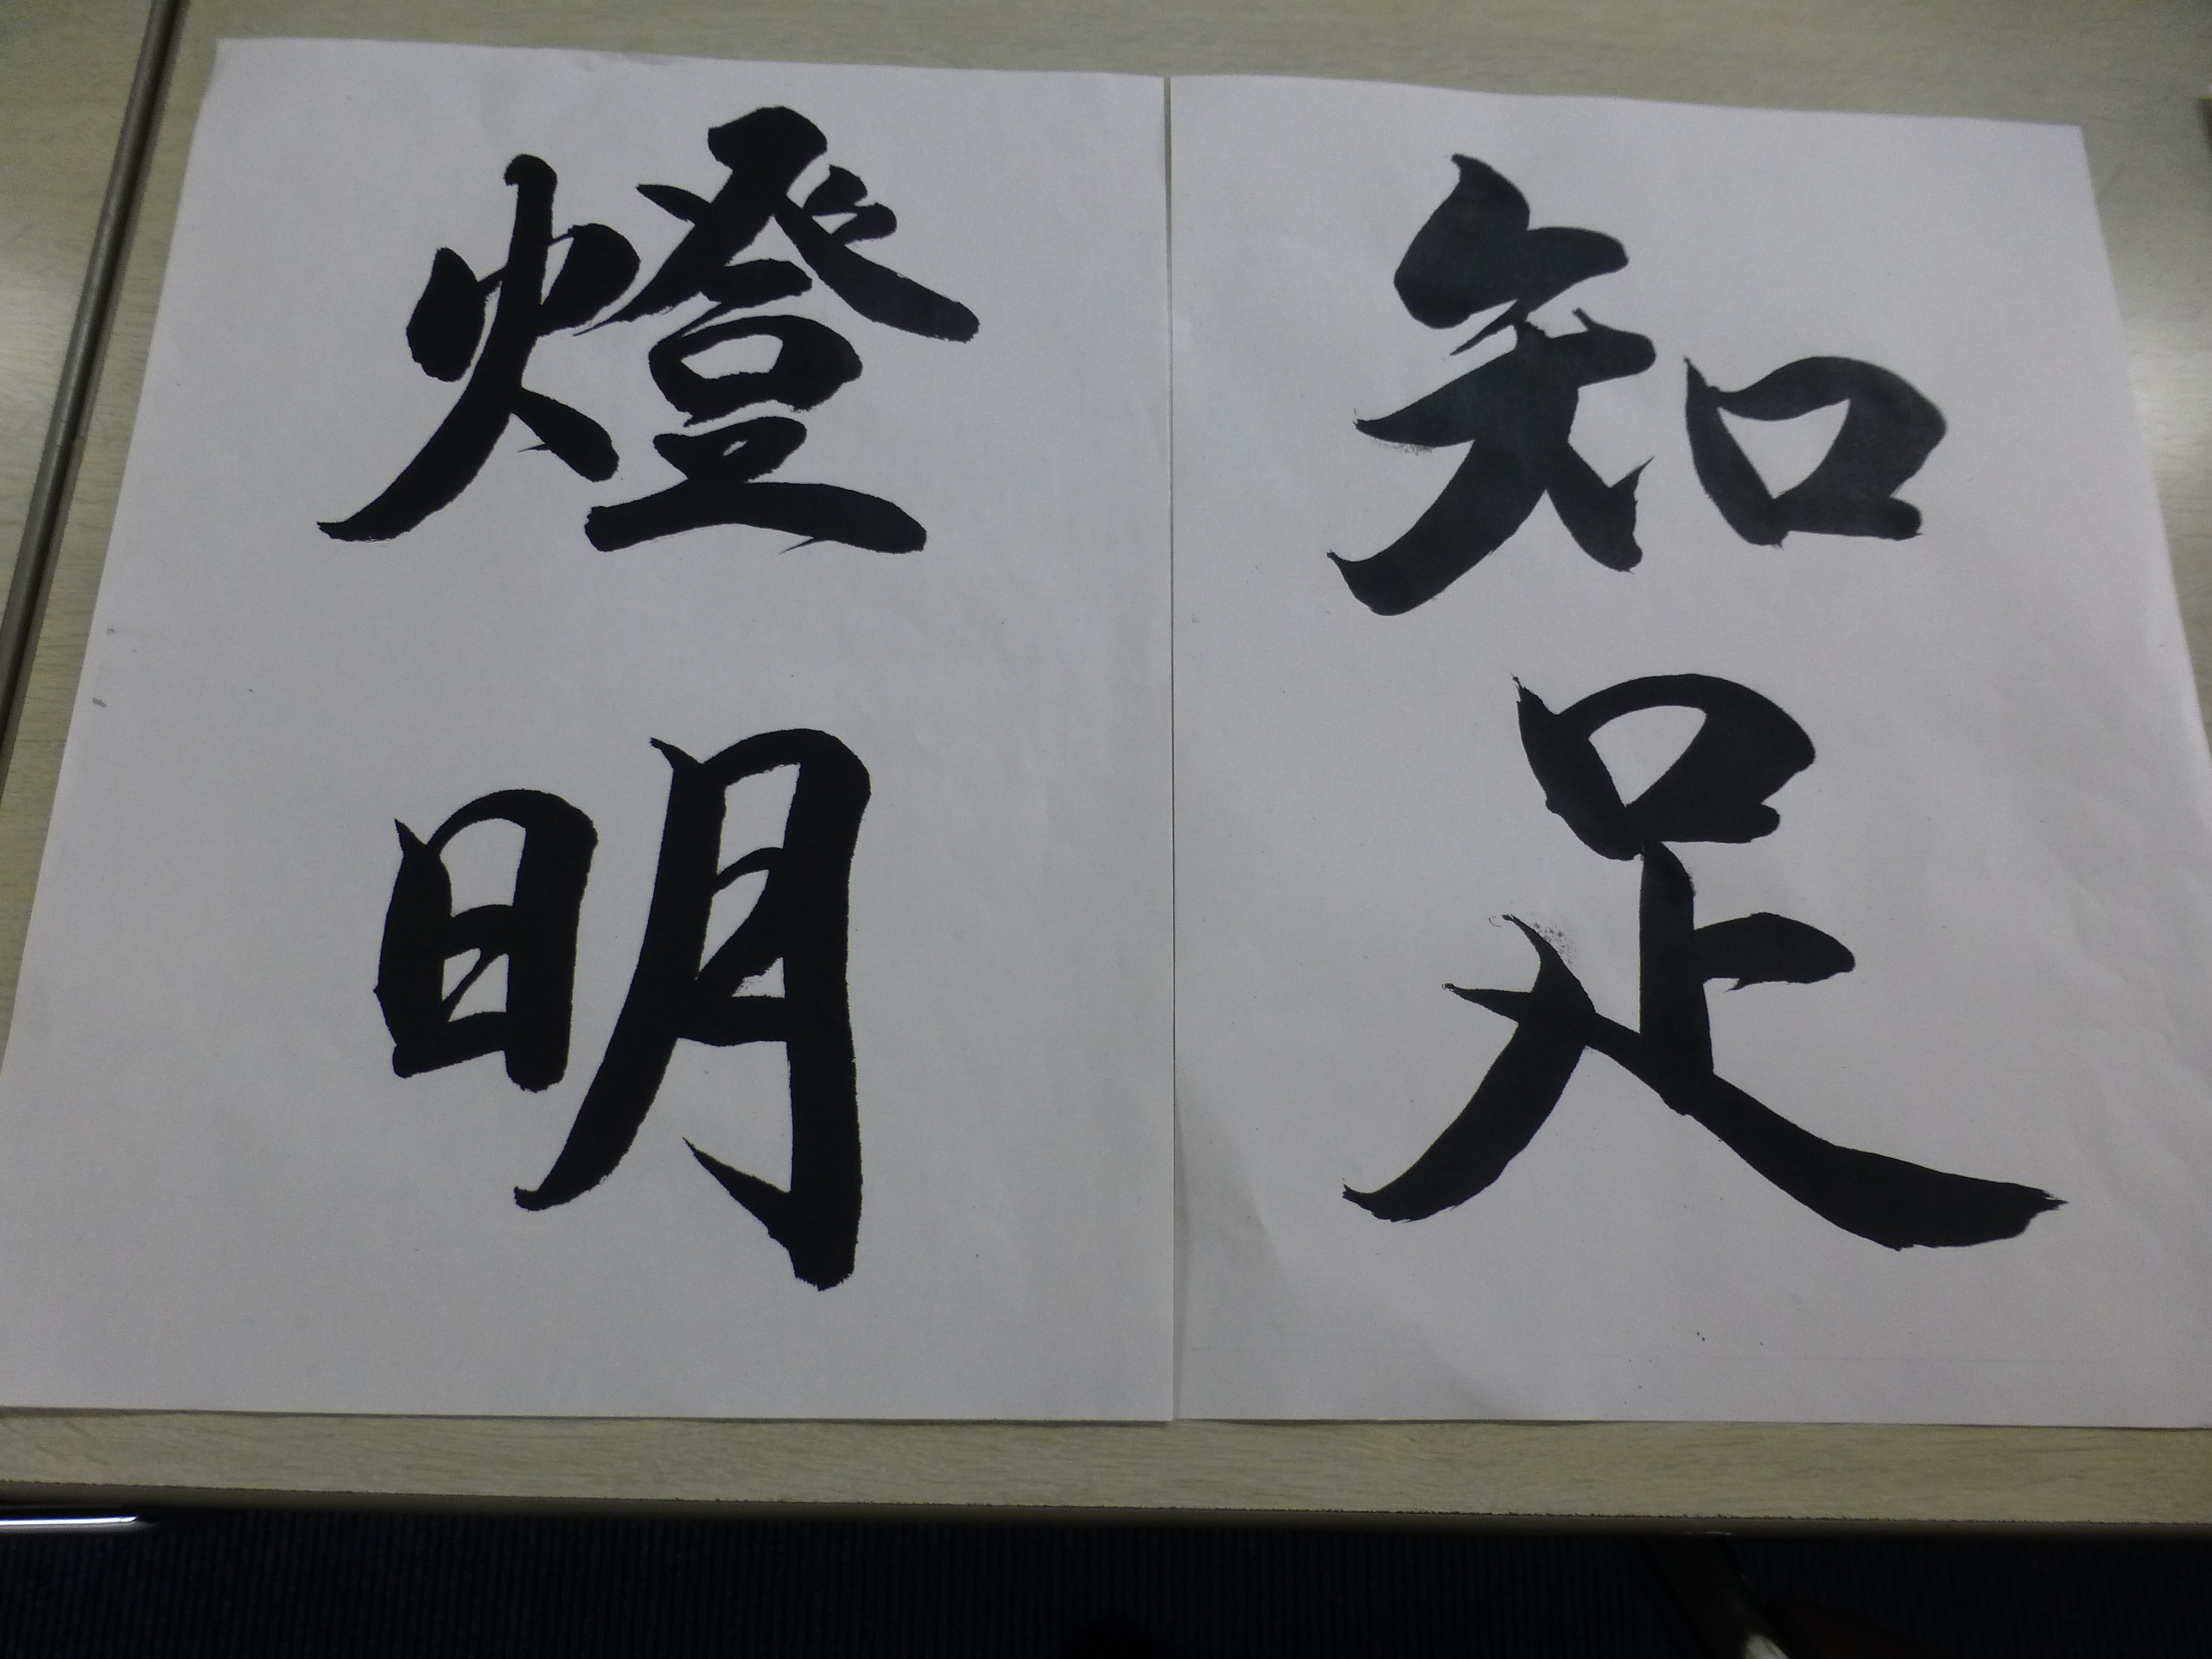 知足
燈明